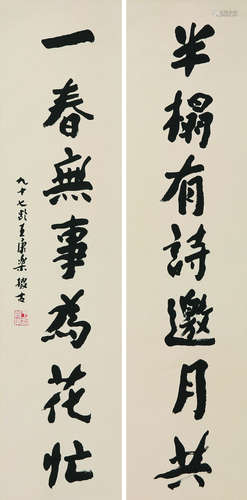 半榻有詩邀月共
一春無事為花忙
九十七齡王康樂撥古